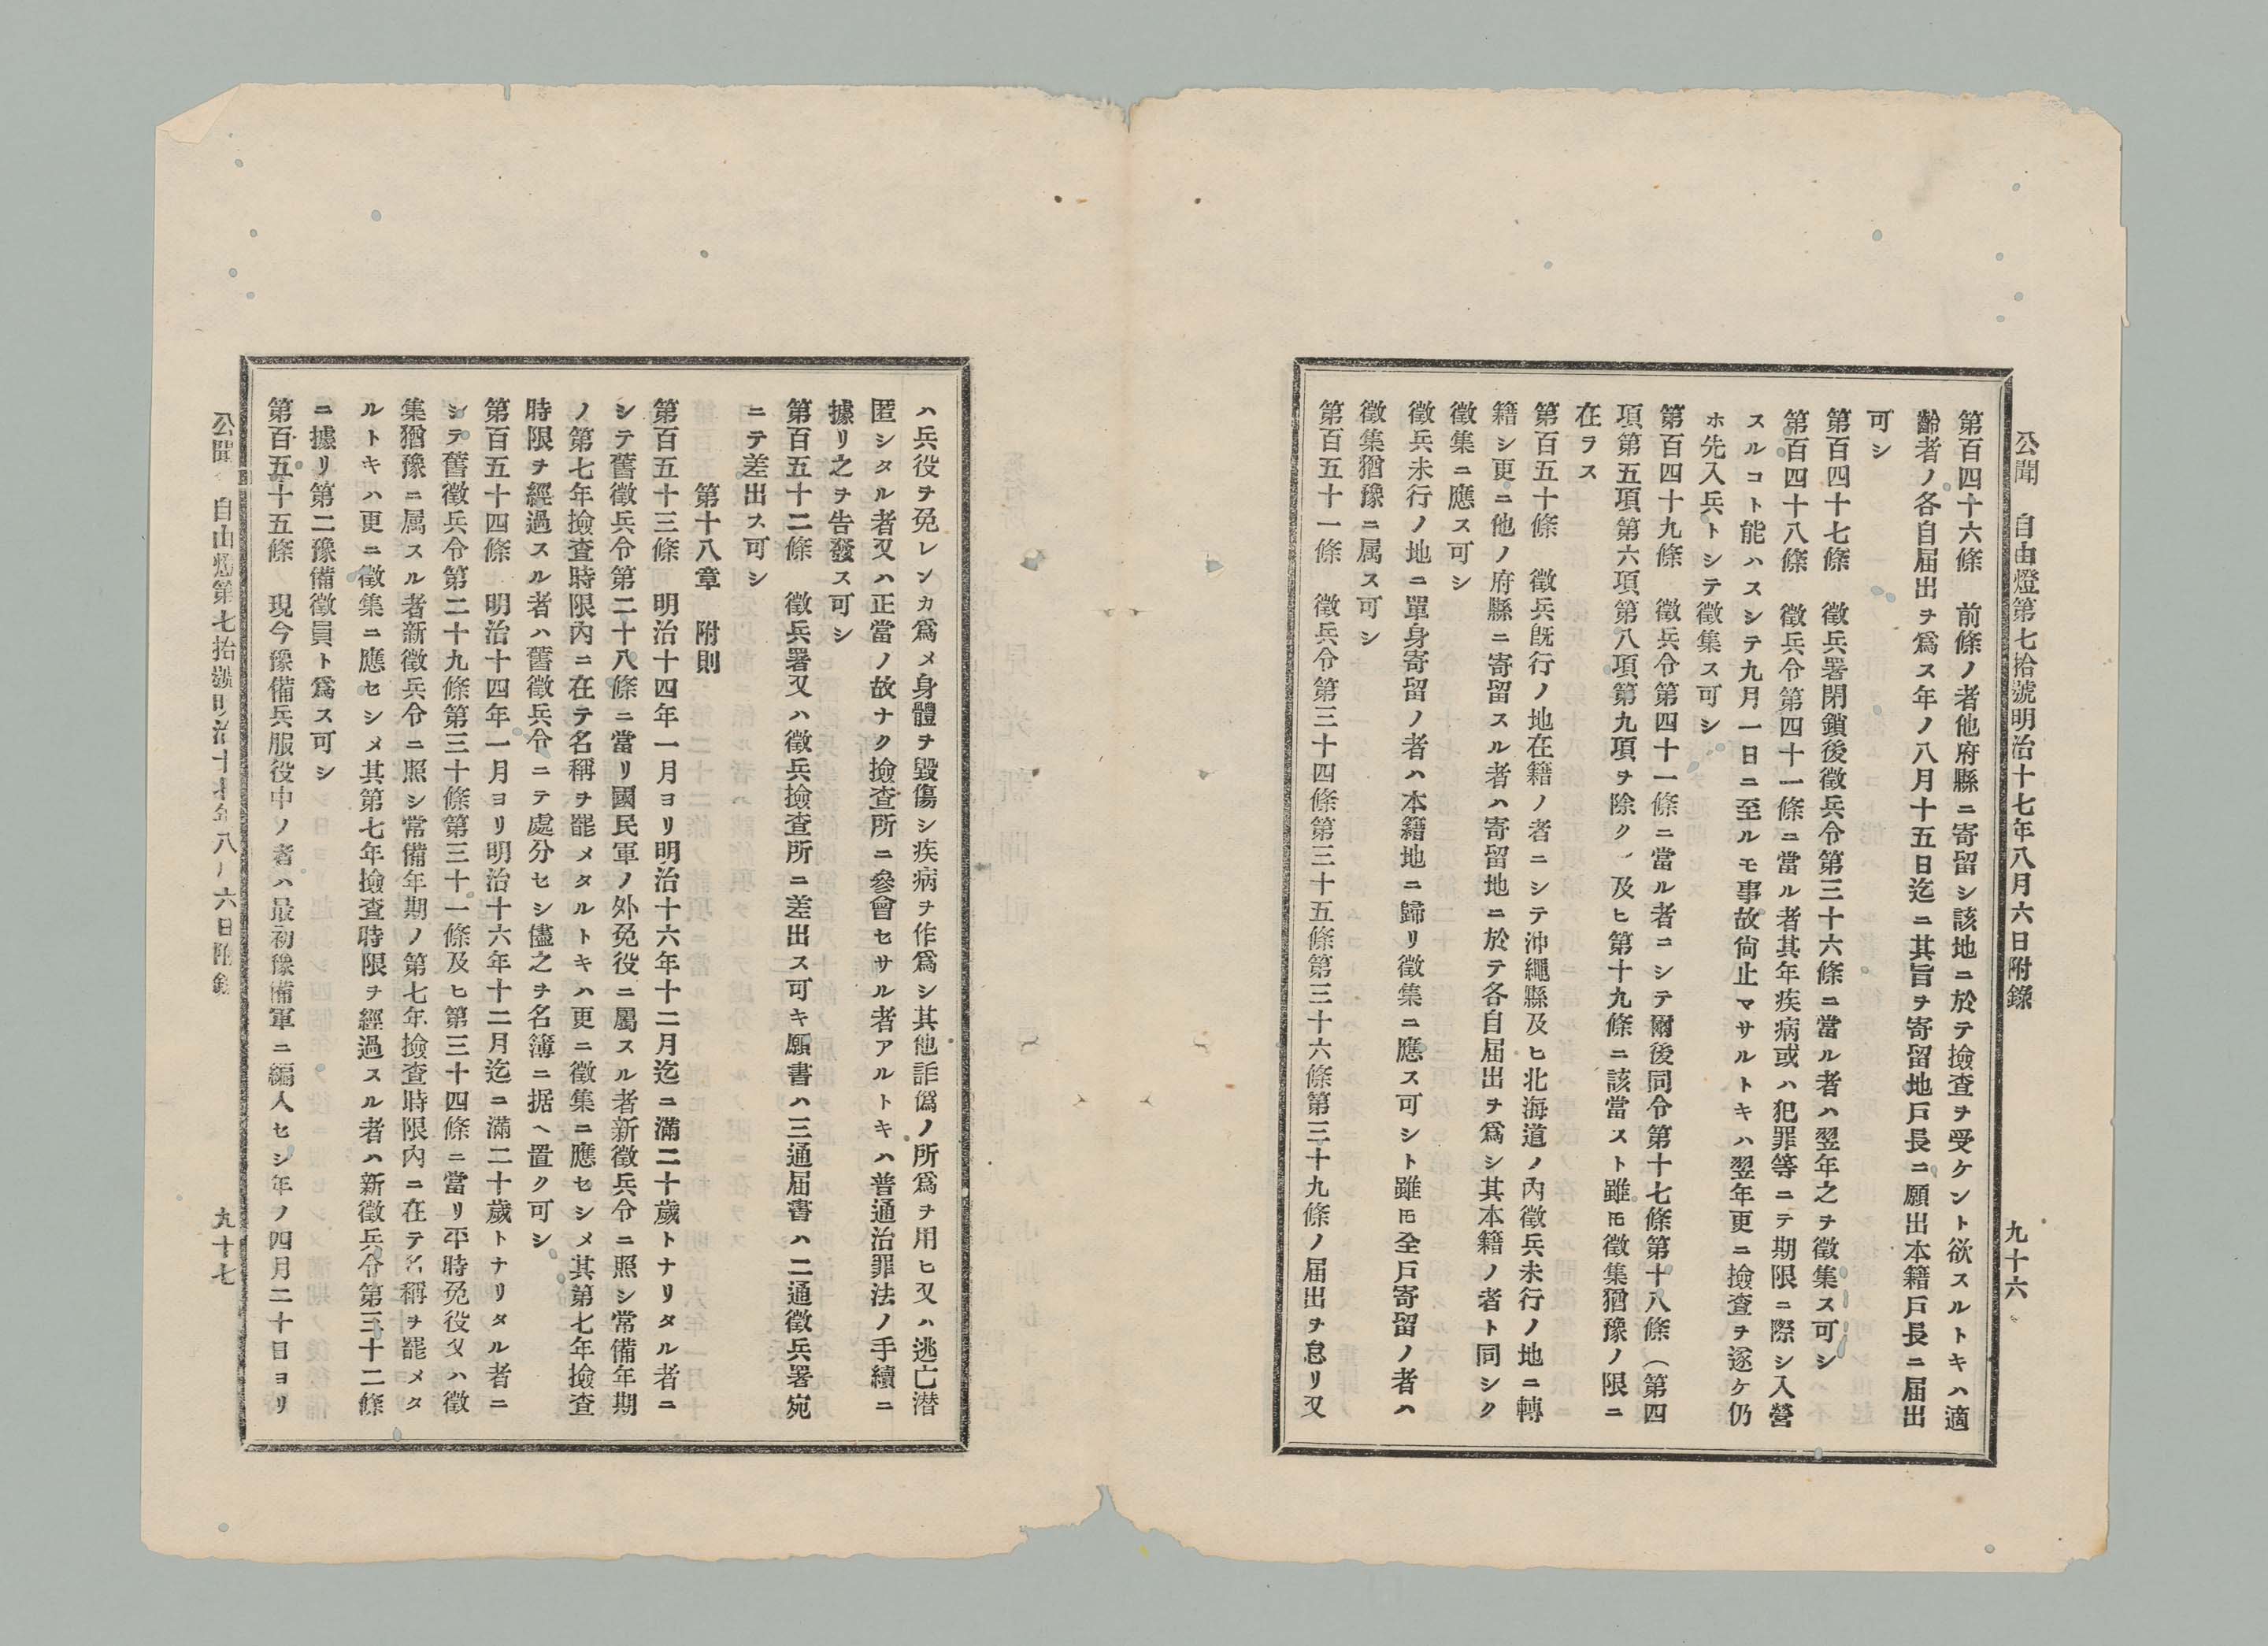 公聞　自由燈第七拾號明治十七年八月六日附錄　九十六
第百四十六條　前條ノ者他府縣ニ寄留シ該地ニ於テ撿査ヲ受ケント欲スルトキハ適
齡者ノ各自届出ヲ爲ス年ノ八月十五日迄ニ其旨ヲ寄留地戸長ニ願出本籍戸長ニ届出
可シ
第百四十七條　徵兵署閉鎖後徵兵令第三十六條ニ當ル者ハ翌年之ヲ徵集ス可シ
第百四十八條　徵兵令第四十一條ニ當ル者其年疾病或ハ犯罪等ニテ期限ニ際シ入營
スルコト能ハスシテ九月一日ニ至ルモ事故尙止マサルトキハ翌年更ニ撿査ヲ遂ケ仍
ホ先入兵トシテ徵集ス可シ
第百四十九條　徵兵令第四十一條ニ當ル者ニシテ爾後同令第十七條第十八條（第四
項第五項第六項第八項第九項ヲ除ク）及ヒ第十九條ニ該當スト雖モ徵集猶豫ノ限ニ
在ラス
第百五十條　徵兵旣行ノ地在籍ノ者ニシテ沖繩縣及ヒ北海道ノ內徵兵未行ノ地ニ轉
籍シ更ニ他ノ府縣ニ寄留スル者ハ寄留地ニ於テ各自届出ヲ爲シ其本籍ノ者ト同シク
徵集ニ應ス可シ
徵兵未行ノ地ニ單身寄留ノ者ハ本籍地ニ歸リ徵集ニ應ス可シト雖モ全戸寄留ノ者ハ
徵集猶豫ニ属ス可シ
第百五十一條　徵兵令第三十四條第三十五條第三十六條第三十九條ノ届出ヲ怠リ又
ハ兵役ヲ免レンカ爲メ身體ヲ毀傷シ疾病ヲ作爲シ其他詐僞ノ所爲ヲ用ヒ又ハ逃亡潜
匿シタル者又ハ正當ノ故ナク撿査所ニ參會セサル者アルトキハ普通治罪法ノ手續ニ
據リ之ヲ告發ス可シ
第百五十二條　徵兵署又ハ徵兵撿査所ニ差出ス可キ願書ハ三通届書ハ二通徵兵署宛
ニテ差出ス可シ
第十八章　附則
第百五十三條　明治十四年一月ヨリ明治十六年十二月迄ニ滿二十歲トナリタル者ニ
シテ舊徵兵令第二十八條ニ當リ國民軍ノ外免役ニ屬スル者新徵兵令ニ照シ常備年期
ノ第七年撿查時限內ニ在テ名稱ヲ罷メタルトキハ更ニ徵集ニ應セシメ其第七年撿查
時限ヲ經過スル者ハ舊徵兵令ニテ處分セシ儘之ヲ名簿ニ据ヘ置ク可シ
第百五十四條　明治十四年一月ヨリ明治十六年十二月迄ニ滿二十歲トナリタル者ニ
シテ舊徵兵令第二十九條第三十條第三十一條及ヒ第三十四條ニ當リ平時免役又ハ徵
集猶豫ニ属スル者新徵兵令ニ照シ常備年期ノ第七年撿查時限內ニ在テ名稱ヲ罷メタ
ルトキハ更ニ徵集ニ應セシメ其第七年撿查時限ヲ經過スル者ハ新徵兵令第三十二條
ニ據リ第二豫備徵員ト爲ス可シ
第百五十五條　現今豫備兵服役中ノ者ハ最初豫備軍ニ編入セシ年ノ四月二十日ヨリ
公聞　自由燈第七拾號明治十七年八月六日附錄　九十七